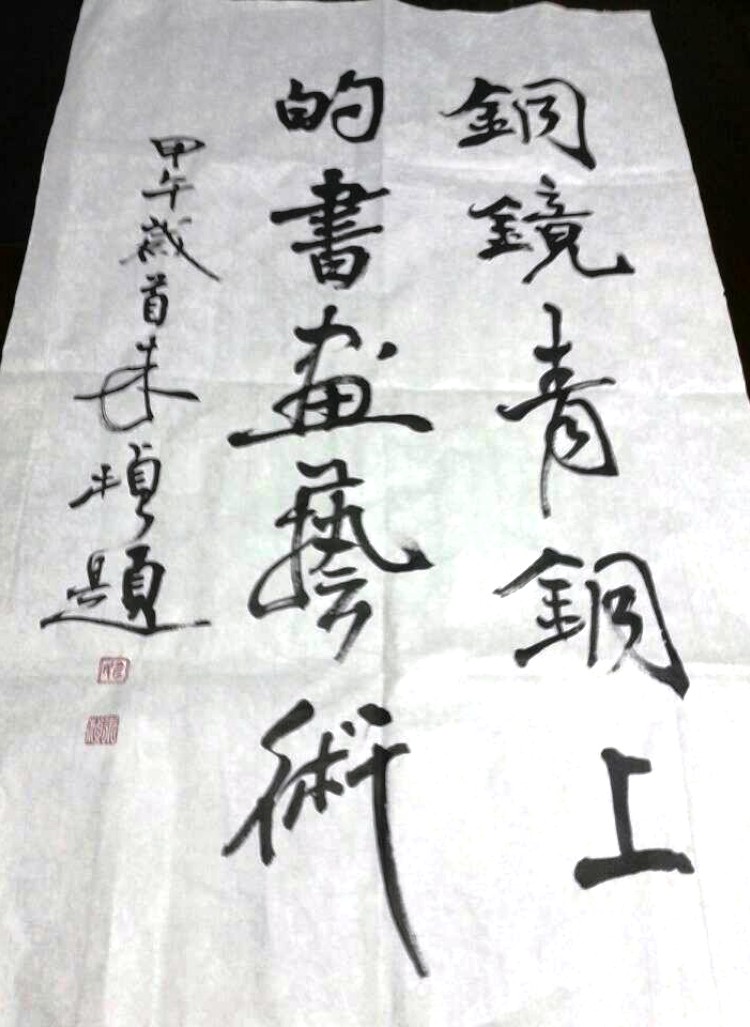 銅鏡青銅上
的書畫藝術
甲午歲首朱楨題